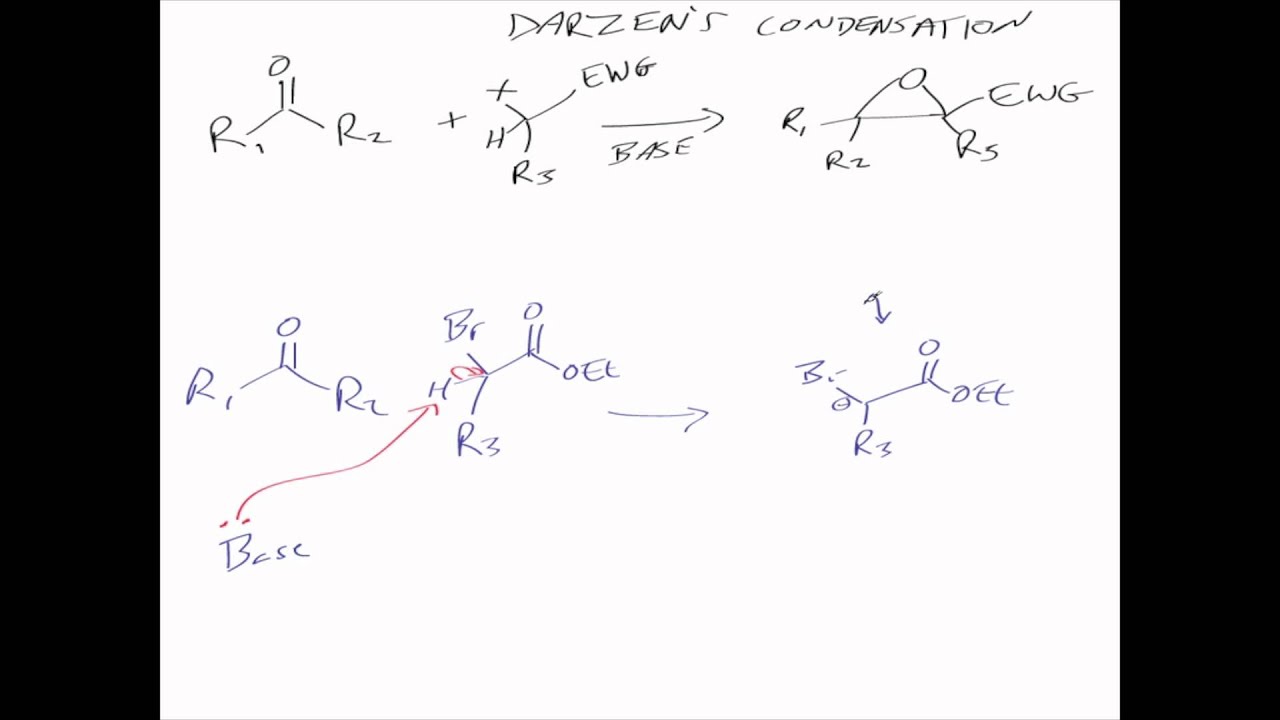 DARZEN'S CONDENSATION
O
R1 R2 + X H R3 EWG BASE O R1 R2 EWG R5
O
R1 R2 Br H R3 O OEt
Br ⊖ R3 O OEt
Base